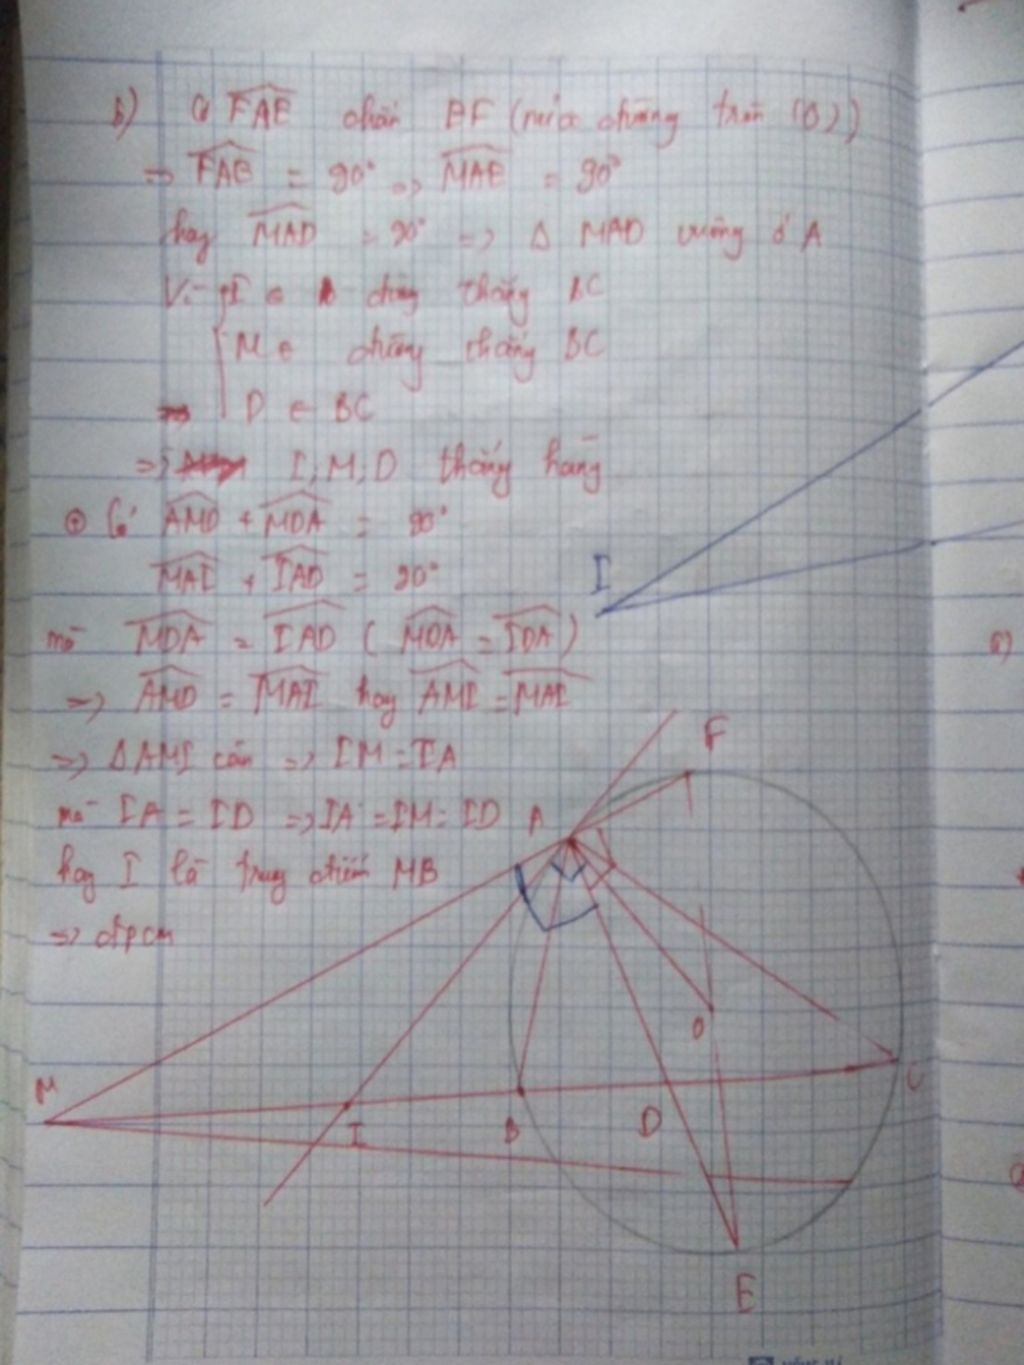 b) Có FAE chắn EF (nửa đường tròn (O))
=> FAE = 90° => MAE = 90°
hay MAD = 90° => Δ MAD vuông ở A
Vì I ∈ đường thẳng BC
M ∈ đường thẳng BC
D ∈ BC
=> I, M, D thẳng hàng
⊕ Có AMD + MDA = 90°
MAI + IAD = 90°
mà MDA = IAD (MDA = IDA)
=> AMD = MAI hay AMI = MAI
=> ΔAMI cân => IM = IA
mà IA = ID => IA = IM = ID
hay I là trung điểm MB
=> đpcm
I
F
A
O
M
I
B
D
C
E